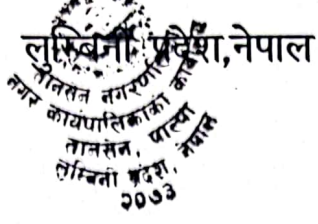 लुम्बिनी प्रदेश,नेपाल
तानसेन नगरपालिका
नगर कार्यपालिकाको कार्यालय
तानसेन, पाल्पा
लुम्बिनी प्रदेश, नेपाल
२०७३